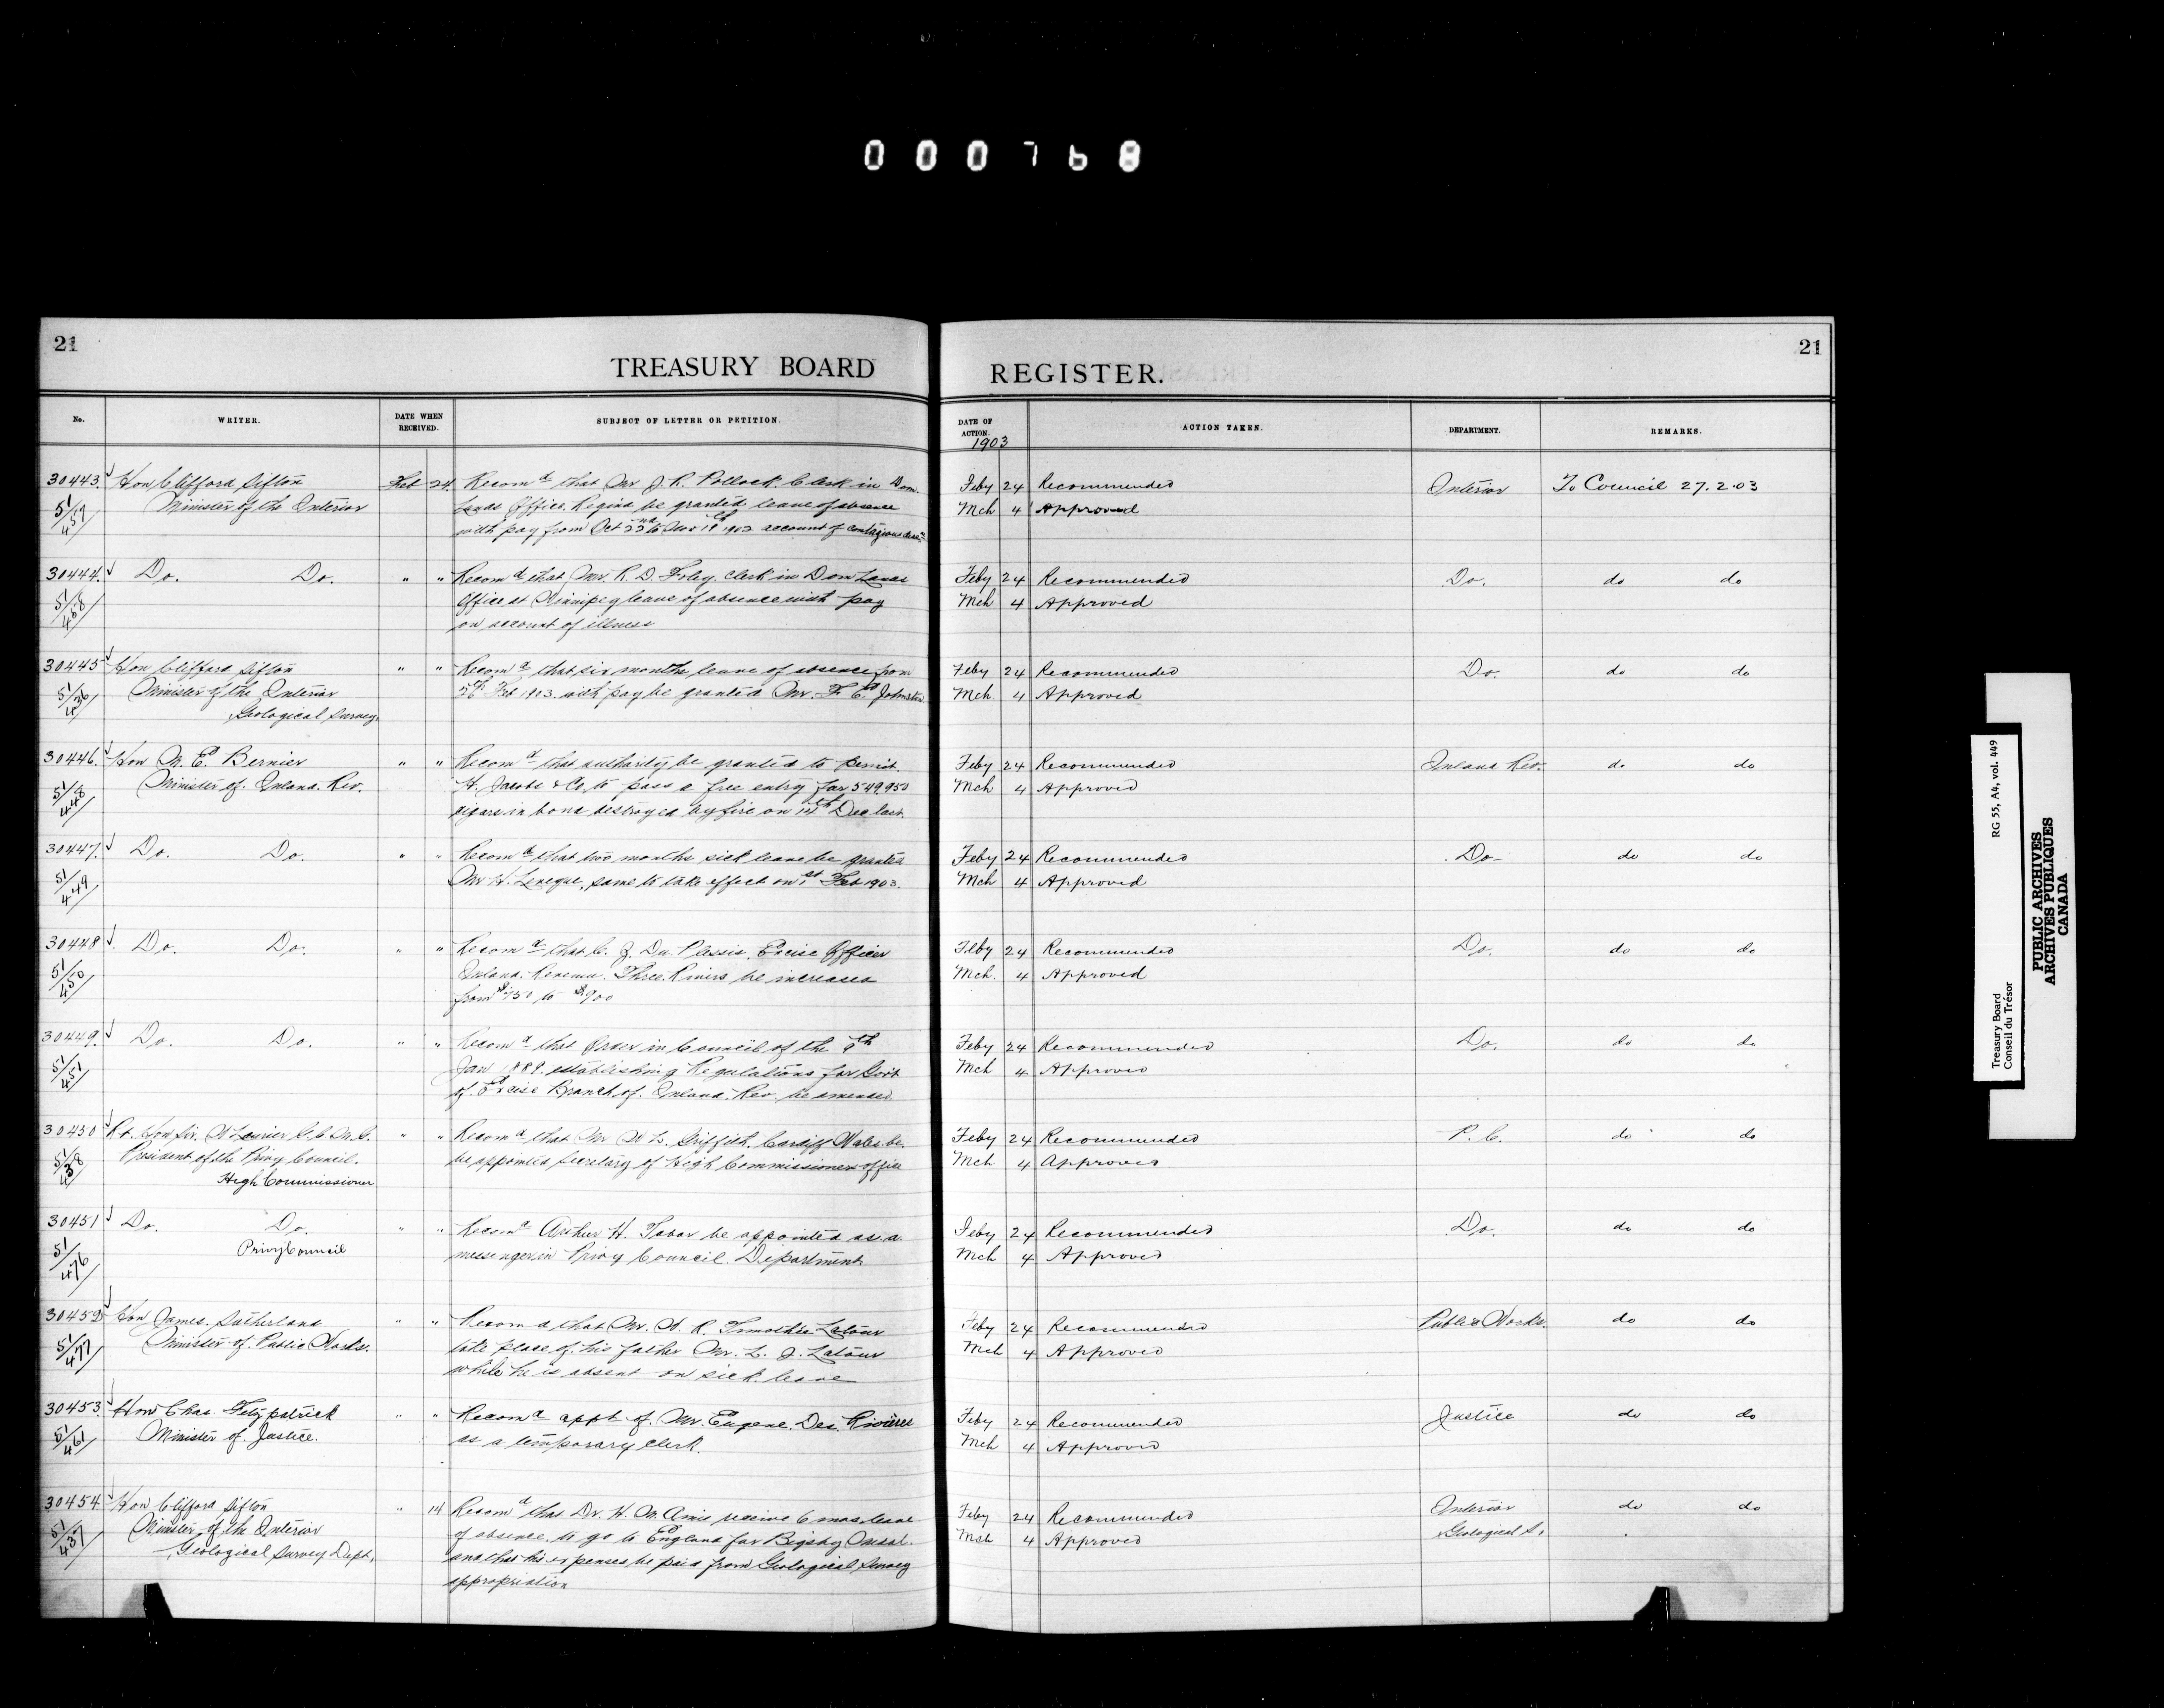 000768
21
TREASURY BOARD
No.
WRITER.
DATE WHEN RECEIVED.
SUBJECT OF LETTER OR PETITION.
30443 Hon Clifford Sifton Feb 24 Recomd that Mr J. R. Pollock Clerk in Dom.
51/459 Minister of the Interior Lands Office, Regina be granted leave of absence
with pay from Oct 22nd to Nov 19th 1902 account of contagious
30444 Do. Do. " " Recomd that Mr. R. D. Foley, Clerk in Dom Lands
51/458 Office at Winnipeg leave of absence with pay
on account of illness
30445 Hon Clifford Sifton " " Recomd that six months leave of absence from
51/436 Minister of the Interior Feb 1903 with pay be granted Mr. Johnston
Geological Survey
30446 Hon M. E. Bernier " " Recomd that authority be granted to permit
51/448 Minister of Inland. Rev. H. Jacobs & Co, to pass a free entry for 549,950
cigars in bond destroyed by fire on 14th Dec last
30447 Do. Do. " " Recomd that two months sick leave be granted
51/449 Mr H. same to take effect on 1st Feb 1903.
30448 Do. Do. " " Recomd that C. Z. Du Plessis, Excise Officer
51/450 Inland. Revenue. Three Rivers be increased
from $750 to $900
30449 Do. Do. " " Recomd that Order in Council of the th
51/451 Jan 1889. establishing Regulations for Govt
of Excise Branch of. Inland. Rev be amended
30450 Rt. Hon Sir. W Laurier G.C.M.G. " " Recomd that Mr W L. Griffith, Cardiff Wales be
President of the Privy Council. be appointed Secretary of High Commissioners office
High Commissioner
30451 Do. Do. " " Recomd Arthur H. be appointed as a
51/476 Privy Council messenger in Privy Council Department
30452 Hon James Sutherland " " Recomd that Mr. Latour
51/477 Minister of Public Works. take place of his father Mr. L. J. Latour
while he is absent on sick leave
30453 Hon Chas. Fitzpatrick " " Recomd appt of Mr. Eugene Des Rivières
51/461 Minister of Justice. as a temporary clerk.
30454 Hon Clifford Sifton " 14 Recomd that Dr. H. M. Ami receive 6 mos leave
51/437 Minister of the Interior of absence, to go to England for Bigsby Medal.
Geological Survey Dept, and that his expenses be paid from Geological Survey
appropriation
REGISTER.
21
DATE OF ACTION.
1903
ACTION TAKEN.
DEPARTMENT.
REMARKS.
Feby 24 Recommended Interior To Council 27.2.03
Mch 4 Approved
Feby 24 Recommended Do. do do
Mch 4 Approved
Feby 24 Recommended Do. do do
Mch 4 Approved
Feby 24 Recommended Inland Rev. do do
Mch 4 Approved
Feby 24 Recommended Do- do do
Mch 4 Approved
Feby 24 Recommended Do. do do
Mch. 4 Approved
Feby 24 Recommended Do. do do
Mch 4 Approved
Feby 24 Recommended P. C. do do
Mch 4 Approved
Feby 24 Recommended Do. do do
Mch 4 Approved
Feby 24 Recommended Public Works. do do
Mch 4 Approved
Feby 24 Recommended Justice do do
Mch 4 Approved
Feby 24 Recommended Interior do do
Mch 4 Approved Geological S.
Treasury Board RG 55, A4, vol. 449
Conseil du Trésor
PUBLIC ARCHIVES
ARCHIVES PUBLIQUES
CANADA